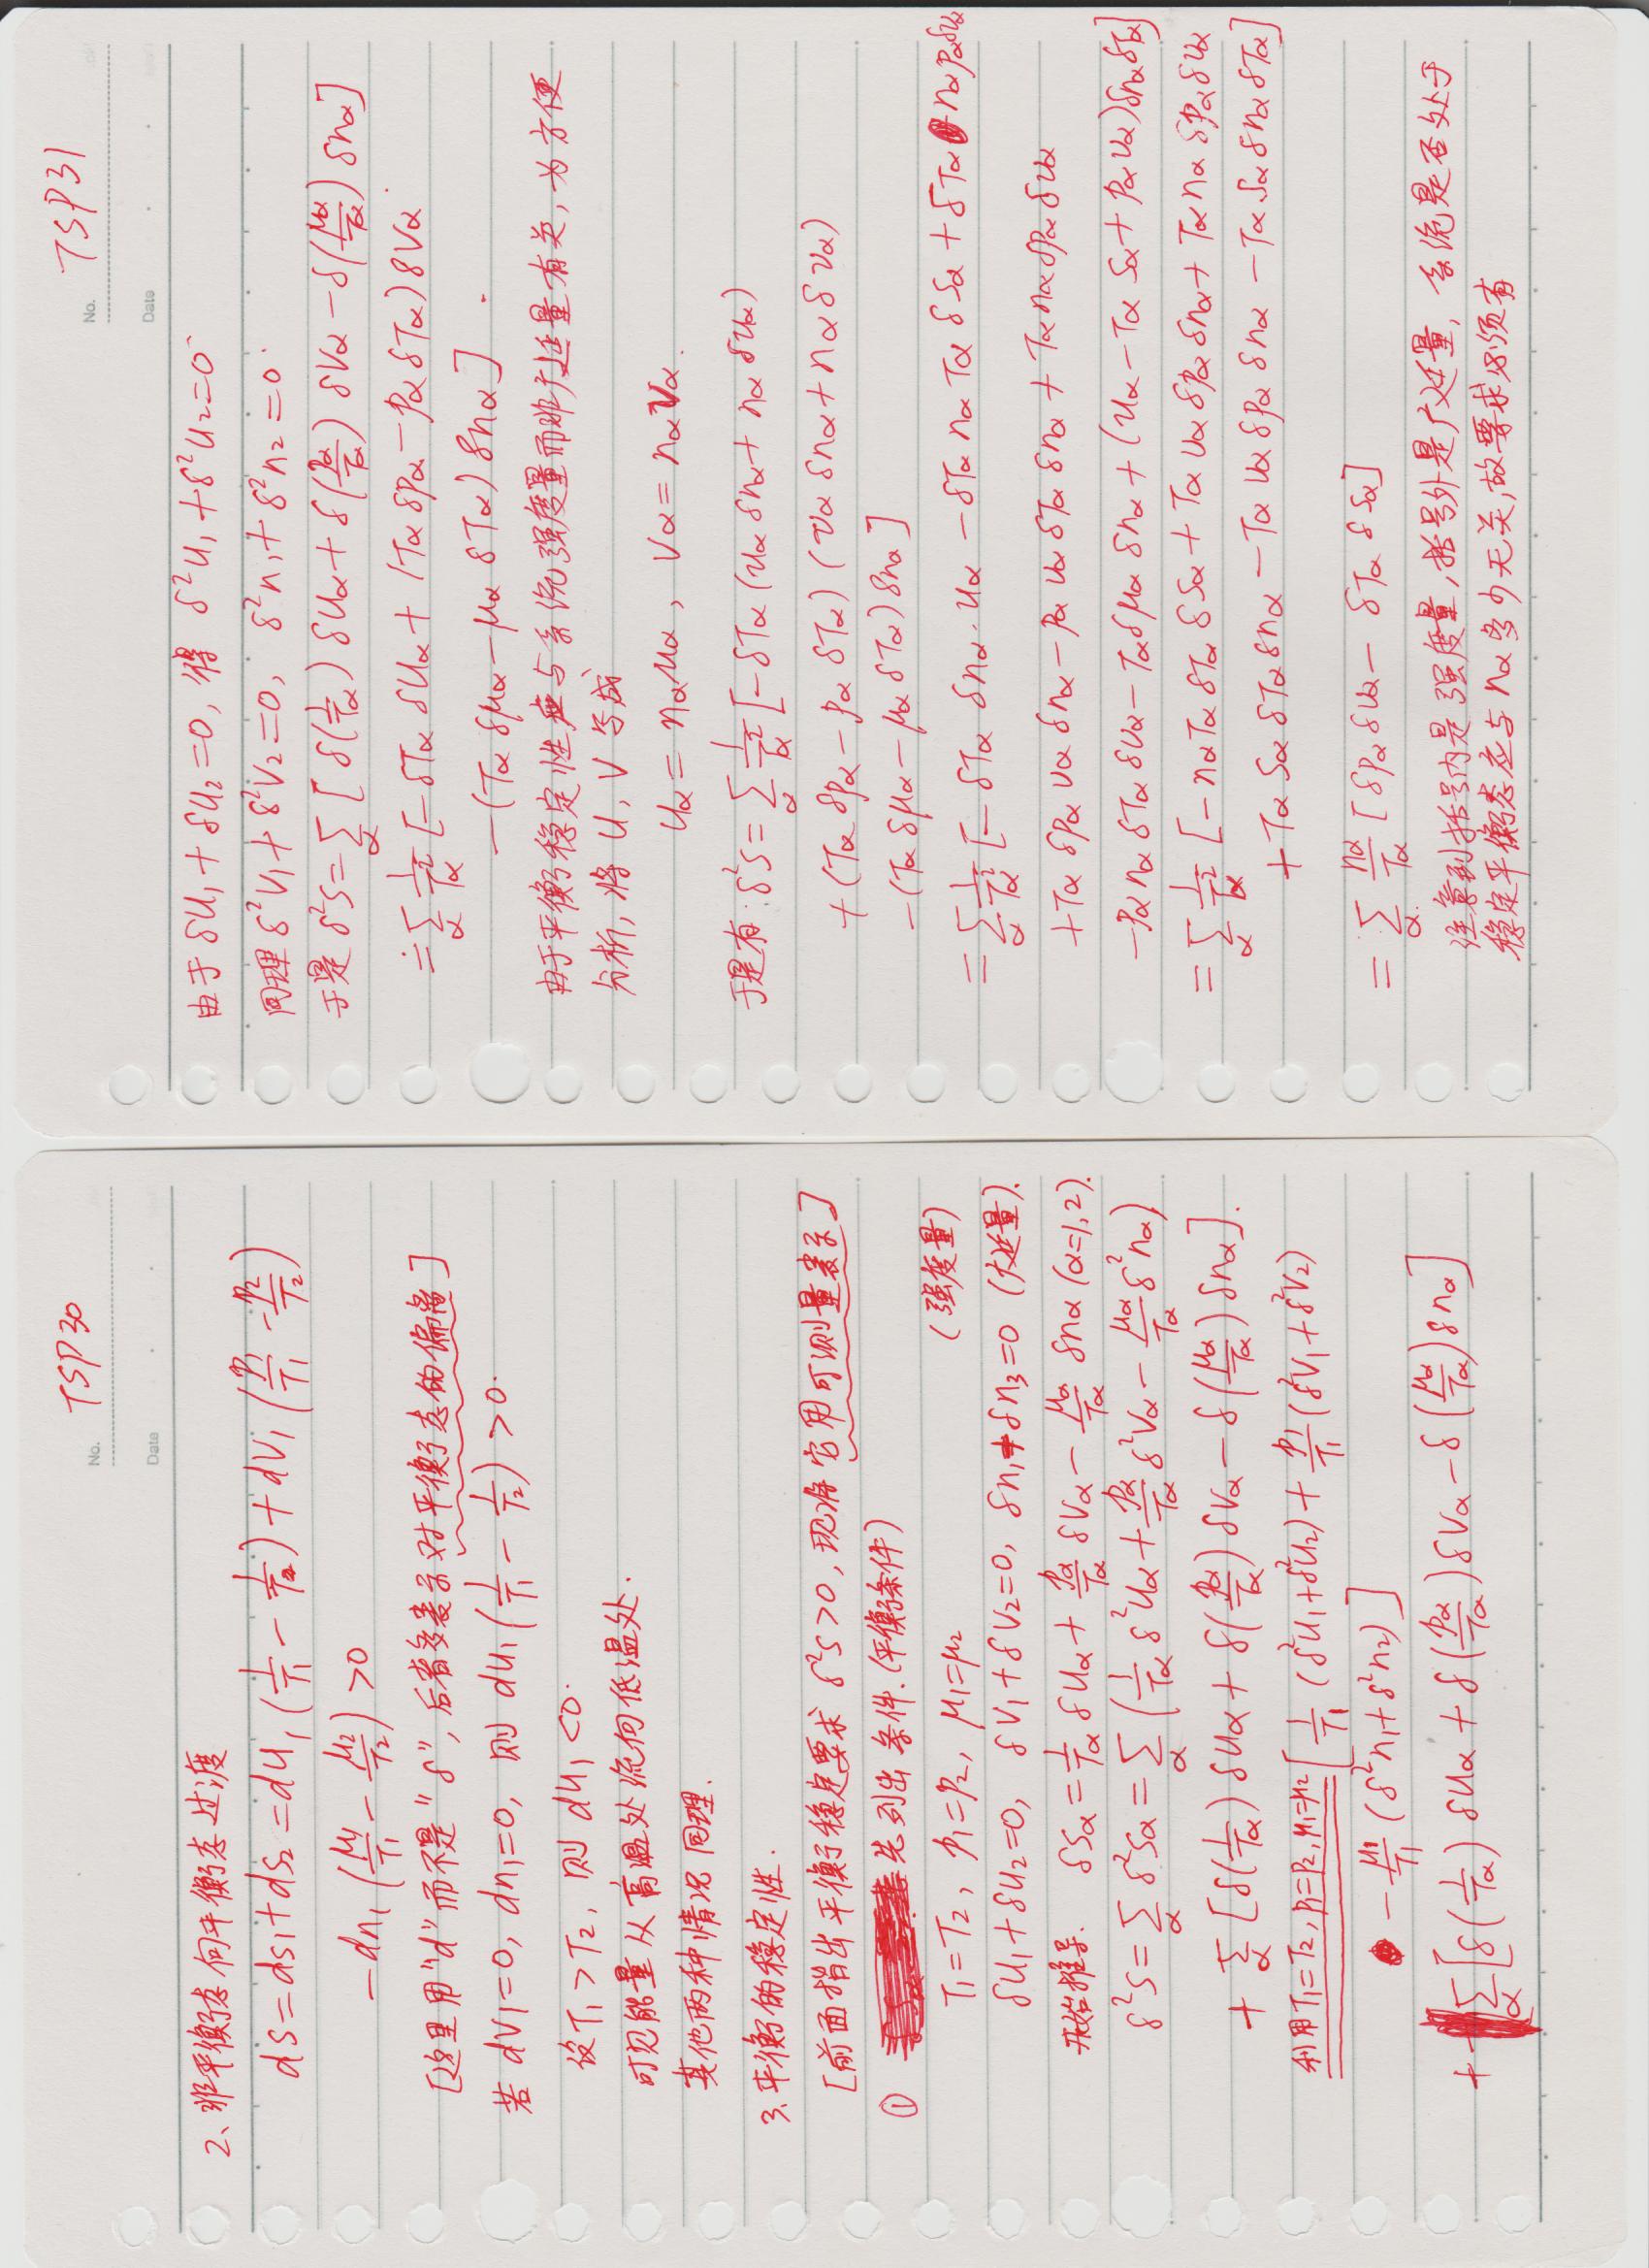 No. TSP30
Date
2、非平衡态向平衡态过渡
dS=dS₁+dS₂=dU₁(1/T₁ - 1/T₂)+dV₁(p₁/T₁ - p₂/T₂)
-dn₁(μ₁/T₁ - μ₂/T₂)>0
[这里用"d"而不是"δ",后者多表示对平衡态的偏离]
若 dV₁=0, dn₁=0, 则 dU₁(1/T₁ - 1/T₂)>0.
设T₁>T₂, 则 dU₁<0.
可见能量从高温处流向低温处.
其他两种情况同理.
3.平衡的稳定性.
[前面指出平衡稳定要求 δ²S>0, 现将它用可测量表示]
① 先列出条件.(平衡条件)
T₁=T₂, p₁=p₂, μ₁=μ₂ (强度量)
δU₁+δU₂=0, δV₁+δV₂=0, δn₁+δn₃=0 (广延量).
开始推导. δSα=1/Tα δUα+pα/Tα δVα-μα/Tα δnα (α=1,2).
δ²S=Σα δ²Sα=Σα(1/Tα δ²Uα+pα/Tα δ²Vα-μα/Tα δ²nα)
+Σα[δ(1/Tα)δUα+δ(pα/Tα)δVα-δ(μα/Tα)δnα].
利用T₁=T₂, p₁=p₂, μ₁=μ₂ [1/T₁(δ²U₁+δ²U₂)+p₁/T₁(δ²V₁+δ²V₂)
-μ₁/T₁(δ²n₁+δ²n₂)]
+Σα[δ(1/Tα)δUα+δ(pα/Tα)δVα-δ(μα/Tα)δnα]
No. TSP31
Date
由于δU₁+δU₂=0, 得 δ²U₁+δ²U₂=0.
同理δ²V₁+δ²V₂=0, δ²n₁+δ²n₂=0.
于是δ²S=Σα[δ(1/Tα)δUα+δ(pα/Tα)δVα-δ(μα/Tα)δnα]
=Σα 1/Tα²[-δTα δUα+(Tα δpα-pα δTα)δVα
-(Tα δμα-μα δTα)δnα].
由于平衡稳定性应与系统强度量而非广延量有关, 为方便
分析, 将 U, V 写成
Uα=nαuα, Vα=nαvα.
于是有:δ²S=Σα 1/Tα²[-δTα(uα δnα+nα δuα)
+(Tα δpα-pα δTα)(vα δnα+nα δvα)
-(Tα δμα-μα δTα)δnα]
=Σα 1/Tα²[-δTα δnα·uα-δTα nα Tα δsα+δTα nα pα δvα
+Tα δpα vα δnα-pα vα δTα δnα+Tα nα δpα δvα
-pα nα δTα δvα-Tα δμα δnα+(uα-Tα sα+pα vα)δnα δTα]
=Σα 1/Tα²[-nαTα δTα δsα+Tα vα δpα δnα+Tα nα δpα δvα
+Tα sα δTα δnα-Tα vα δpα δnα-Tα sα δnα δTα]
=Σα nα/Tα[δpα δvα-δTα δsα]
注意到括号内是强度量, 括号外是广延量, 系统是否处于
稳定平衡态应与nα多少无关,故要求必须有